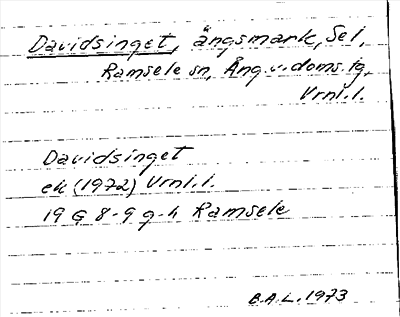 Davidsinget, ängsmark, Sel,
Ramsele sn, Ång. v. doms. tg,
Vrnl. l.
Davidsinget
ek (1972) Vrnl. l.
19 G 8-9 g-h Ramsele
B.A.L. 1973